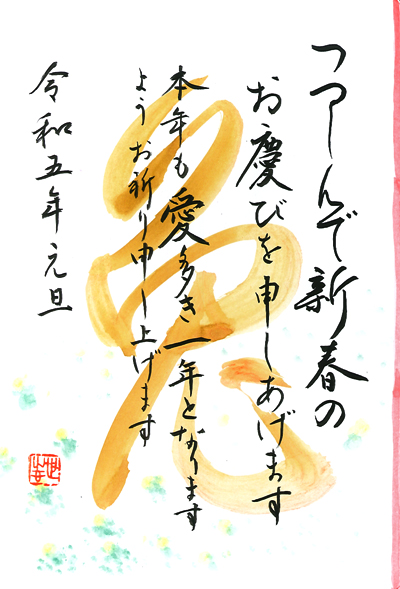 つつしんで新春の
お慶びを申しあげます
本年も愛多き一年となります
ようお祈り申し上げます
令和五年元旦
兎